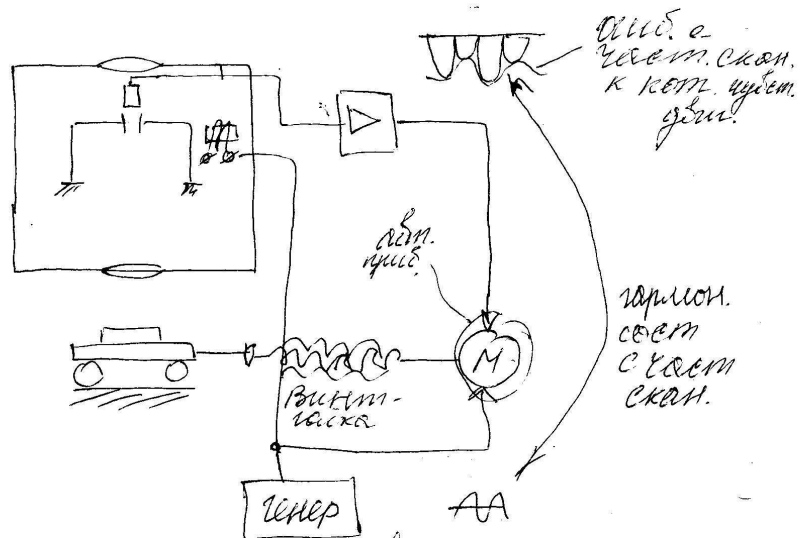 огиб. с
част. скан.
к кот. чувст.
двиг.
авп.
приб.
М
гармон.
сост
с част
скан.
Винт-
гайка
генер